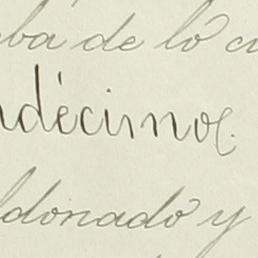 ba de lo
ndécimo
ldonado y